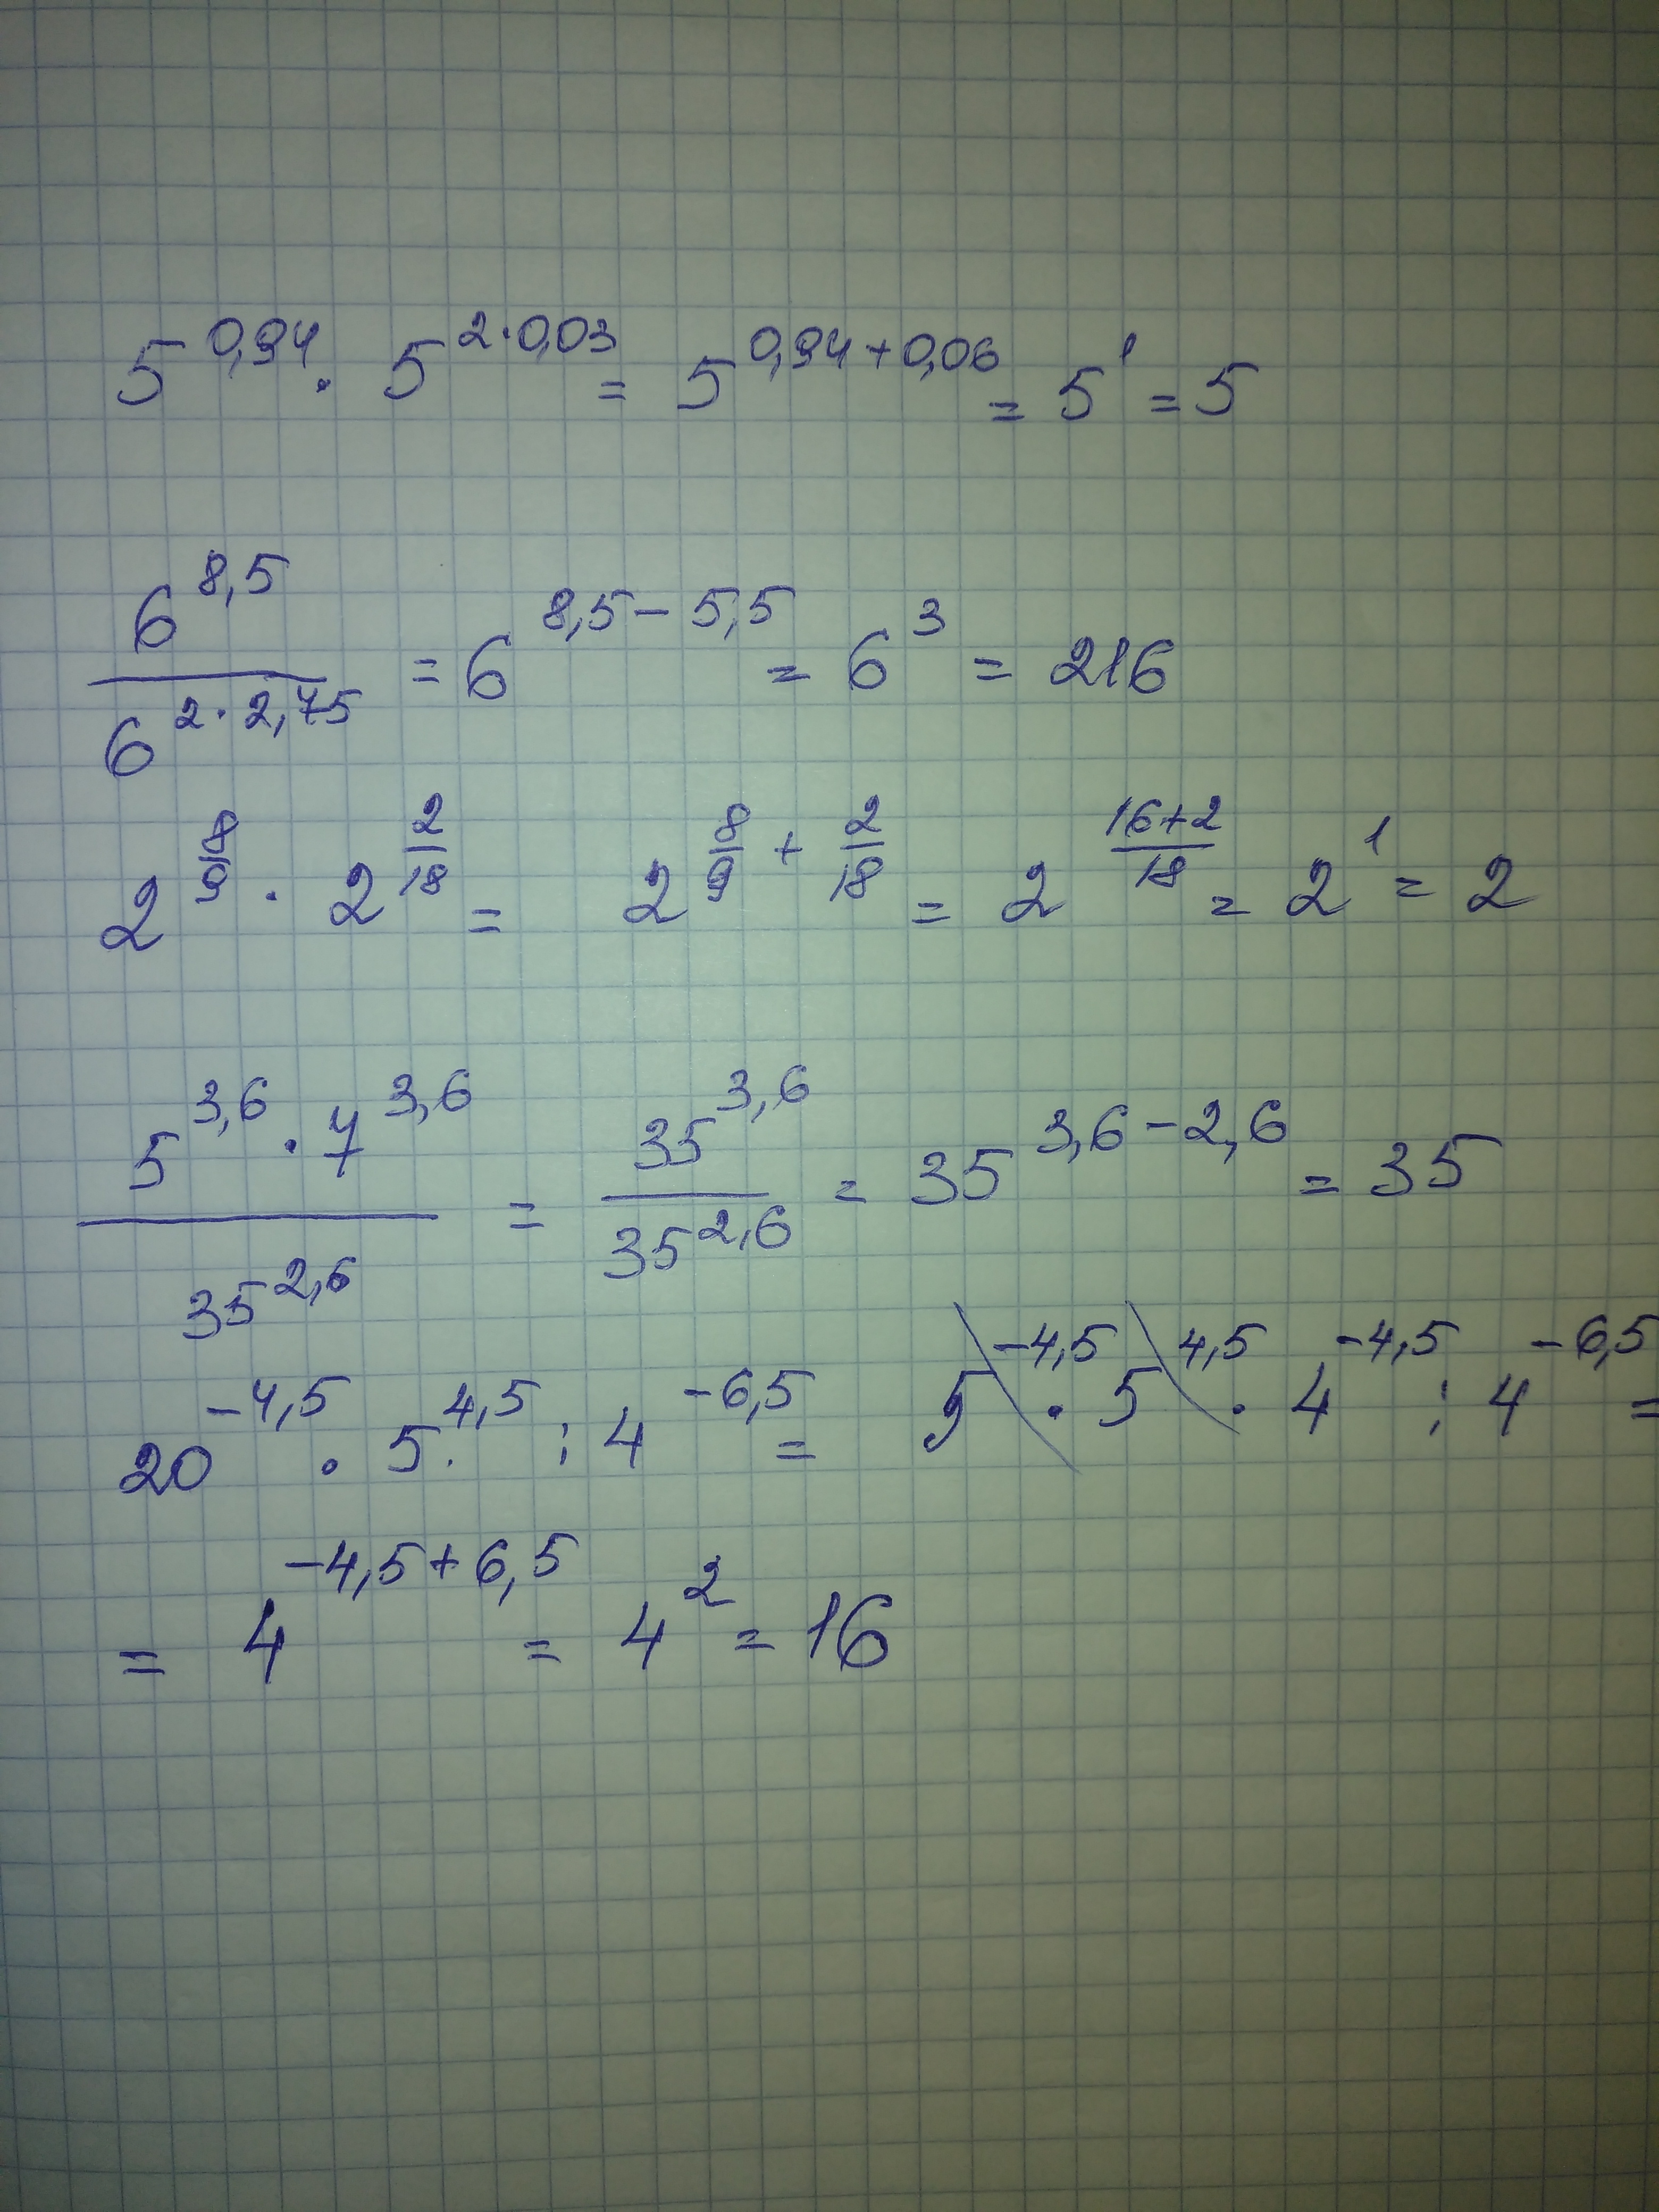 5^{0,94} · 5^{2·0,03} = 5^{0,94+0,06} = 5^1 = 5
\frac{6^{8,5}}{6^{2·2,75}} = 6^{8,5-5,5} = 6^3 = 216
2^{\frac{8}{9}} · 2^{\frac{2}{18}} = 2^{\frac{8}{9}+\frac{2}{18}} = 2^{\frac{16+2}{18}} = 2^1 = 2
\frac{5^{3,6} · 7^{3,6}}{35^{2,6}} = \frac{35^{3,6}}{35^{2,6}} = 35^{3,6-2,6} = 35
20^{-4,5} · 5^{4,5} : 4^{-6,5} = 5^{-4,5} · 5^{4,5} · 4^{-4,5} : 4^{-6,5} =
= 4^{-4,5+6,5} = 4^2 = 16